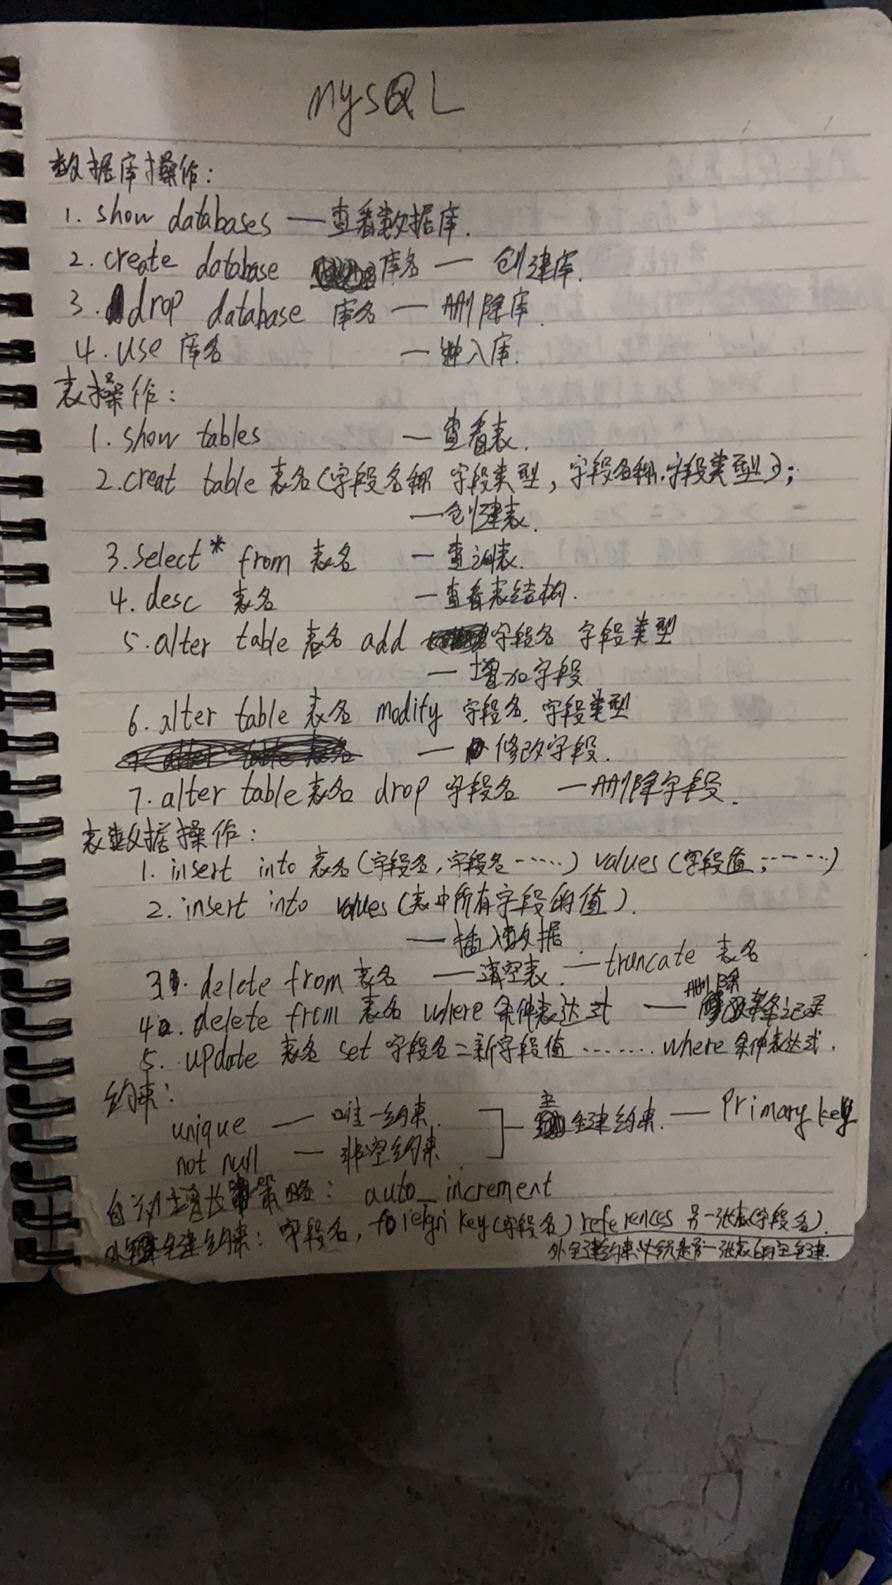 MySQL
数据库操作：
1. show databases — 查看数据库.
2. create database 库名 — 创建库.
3. drop database 库名 — 删除库.
4. use 库名 — 进入库.
表操作：
1. show tables — 查看表.
2. creat table 表名(字段名称 字段类型, 字段名称.字段类型);
— 创建表.
3. select * from 表名 — 查询表.
4. desc 表名 — 查看表结构.
5. alter table 表名 add 字段名 字段类型
— 增加字段
6. alter table 表名 modify 字段名. 字段类型
— 修改字段.
7. alter table 表名 drop 字段名 — 删除字段.
表数据操作：
1. insert into 表名(字段名,字段名……) values (字段值,……)
2. insert into values(表中所有字段的值).
— 插入数据
3. delete from 表名 — 清空表 — truncate 表名
4. delete from 表名 where 条件表达式 — 删除某条记录
5. update 表名 set 字段名=新字段值 …….. where 条件表达式.
约束：
unique — 唯一约束. — 主键约束. — Primary key
not null — 非空约束
自动增长策略： auto_increment
外键约束：字段名, foreign key(字段名) references 另一张表(字段名).
外键约束必须是另一张表的主键.